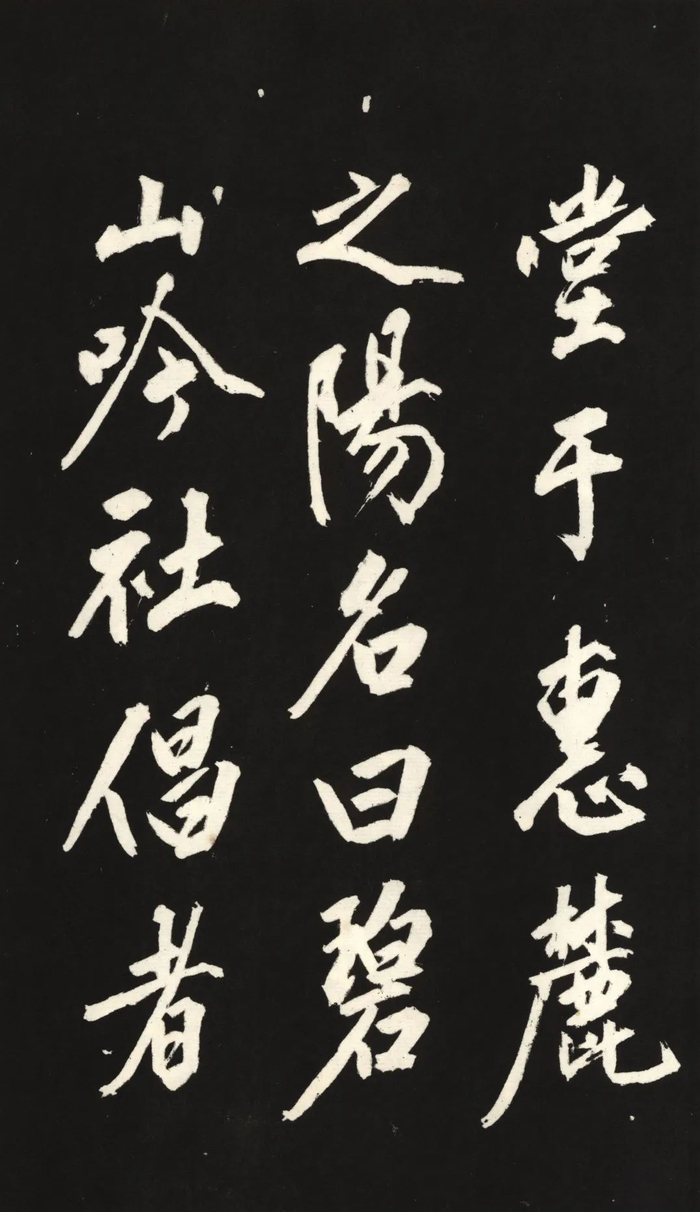 堂于惠麓
之陽名曰碧
山吟社倡者